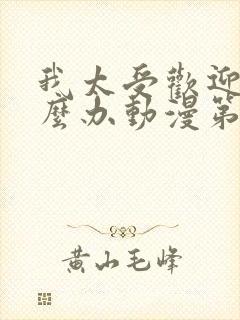 我太受歡迎
麼办動漫第
黄山毛峰